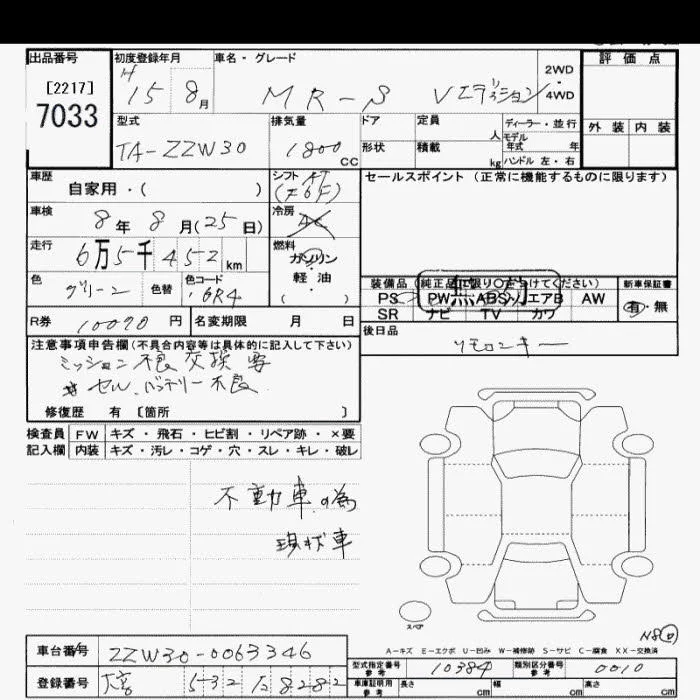 出品番号 初度登録年月 車名・グレード 2WD・4WD 評価点
[2217]
7033
H 15 8月 MR-S Vエディション
外装 内装
型式 排気量 ドア 定員 人 ディーラー・並行
モデル年式 年
TA-ZZW30 1800 CC 形状 積載 kg ハンドル 左・右
車歴 シフト AT セールスポイント(正常に機能するものに限ります)
自家用・( )
車検 冷房
8年 8月(25日)
走行 燃料
6万5千452km ガソリン
色 色替 色コード 軽油
グリーン 6R4 ( ・ )
装備品(純正品に限り○をつけてください) 新車保証書
PS PW ABS エアB AW 有・無
SR ナビ TV カワ
R券 10090円 名変期限 月 日
後日品
リモコンキー
注意事項申告欄(不具合内容等は具体的に記入して下さい)
ミッション不良 交換要
セル、バッテリー不良
修復歴 有 [箇所 ]
検査員 FW キズ・飛石・ヒビ割・リペア跡・×要
記入欄 内装 キズ・汚レ・コゲ・穴・スレ・キレ・破レ
不動車の為
現状車
スペア
A-キズ E-エクボ U-凹み W-補修跡 S-サビ C-腐食 XX-交換済
車台番号 ZZW30-0063346
型式指定番号 参考 10384 類別区分番号 参考 0010
登録番号 532 8282
車庫証明用 参考 長さ cm 幅 cm 高さ cm